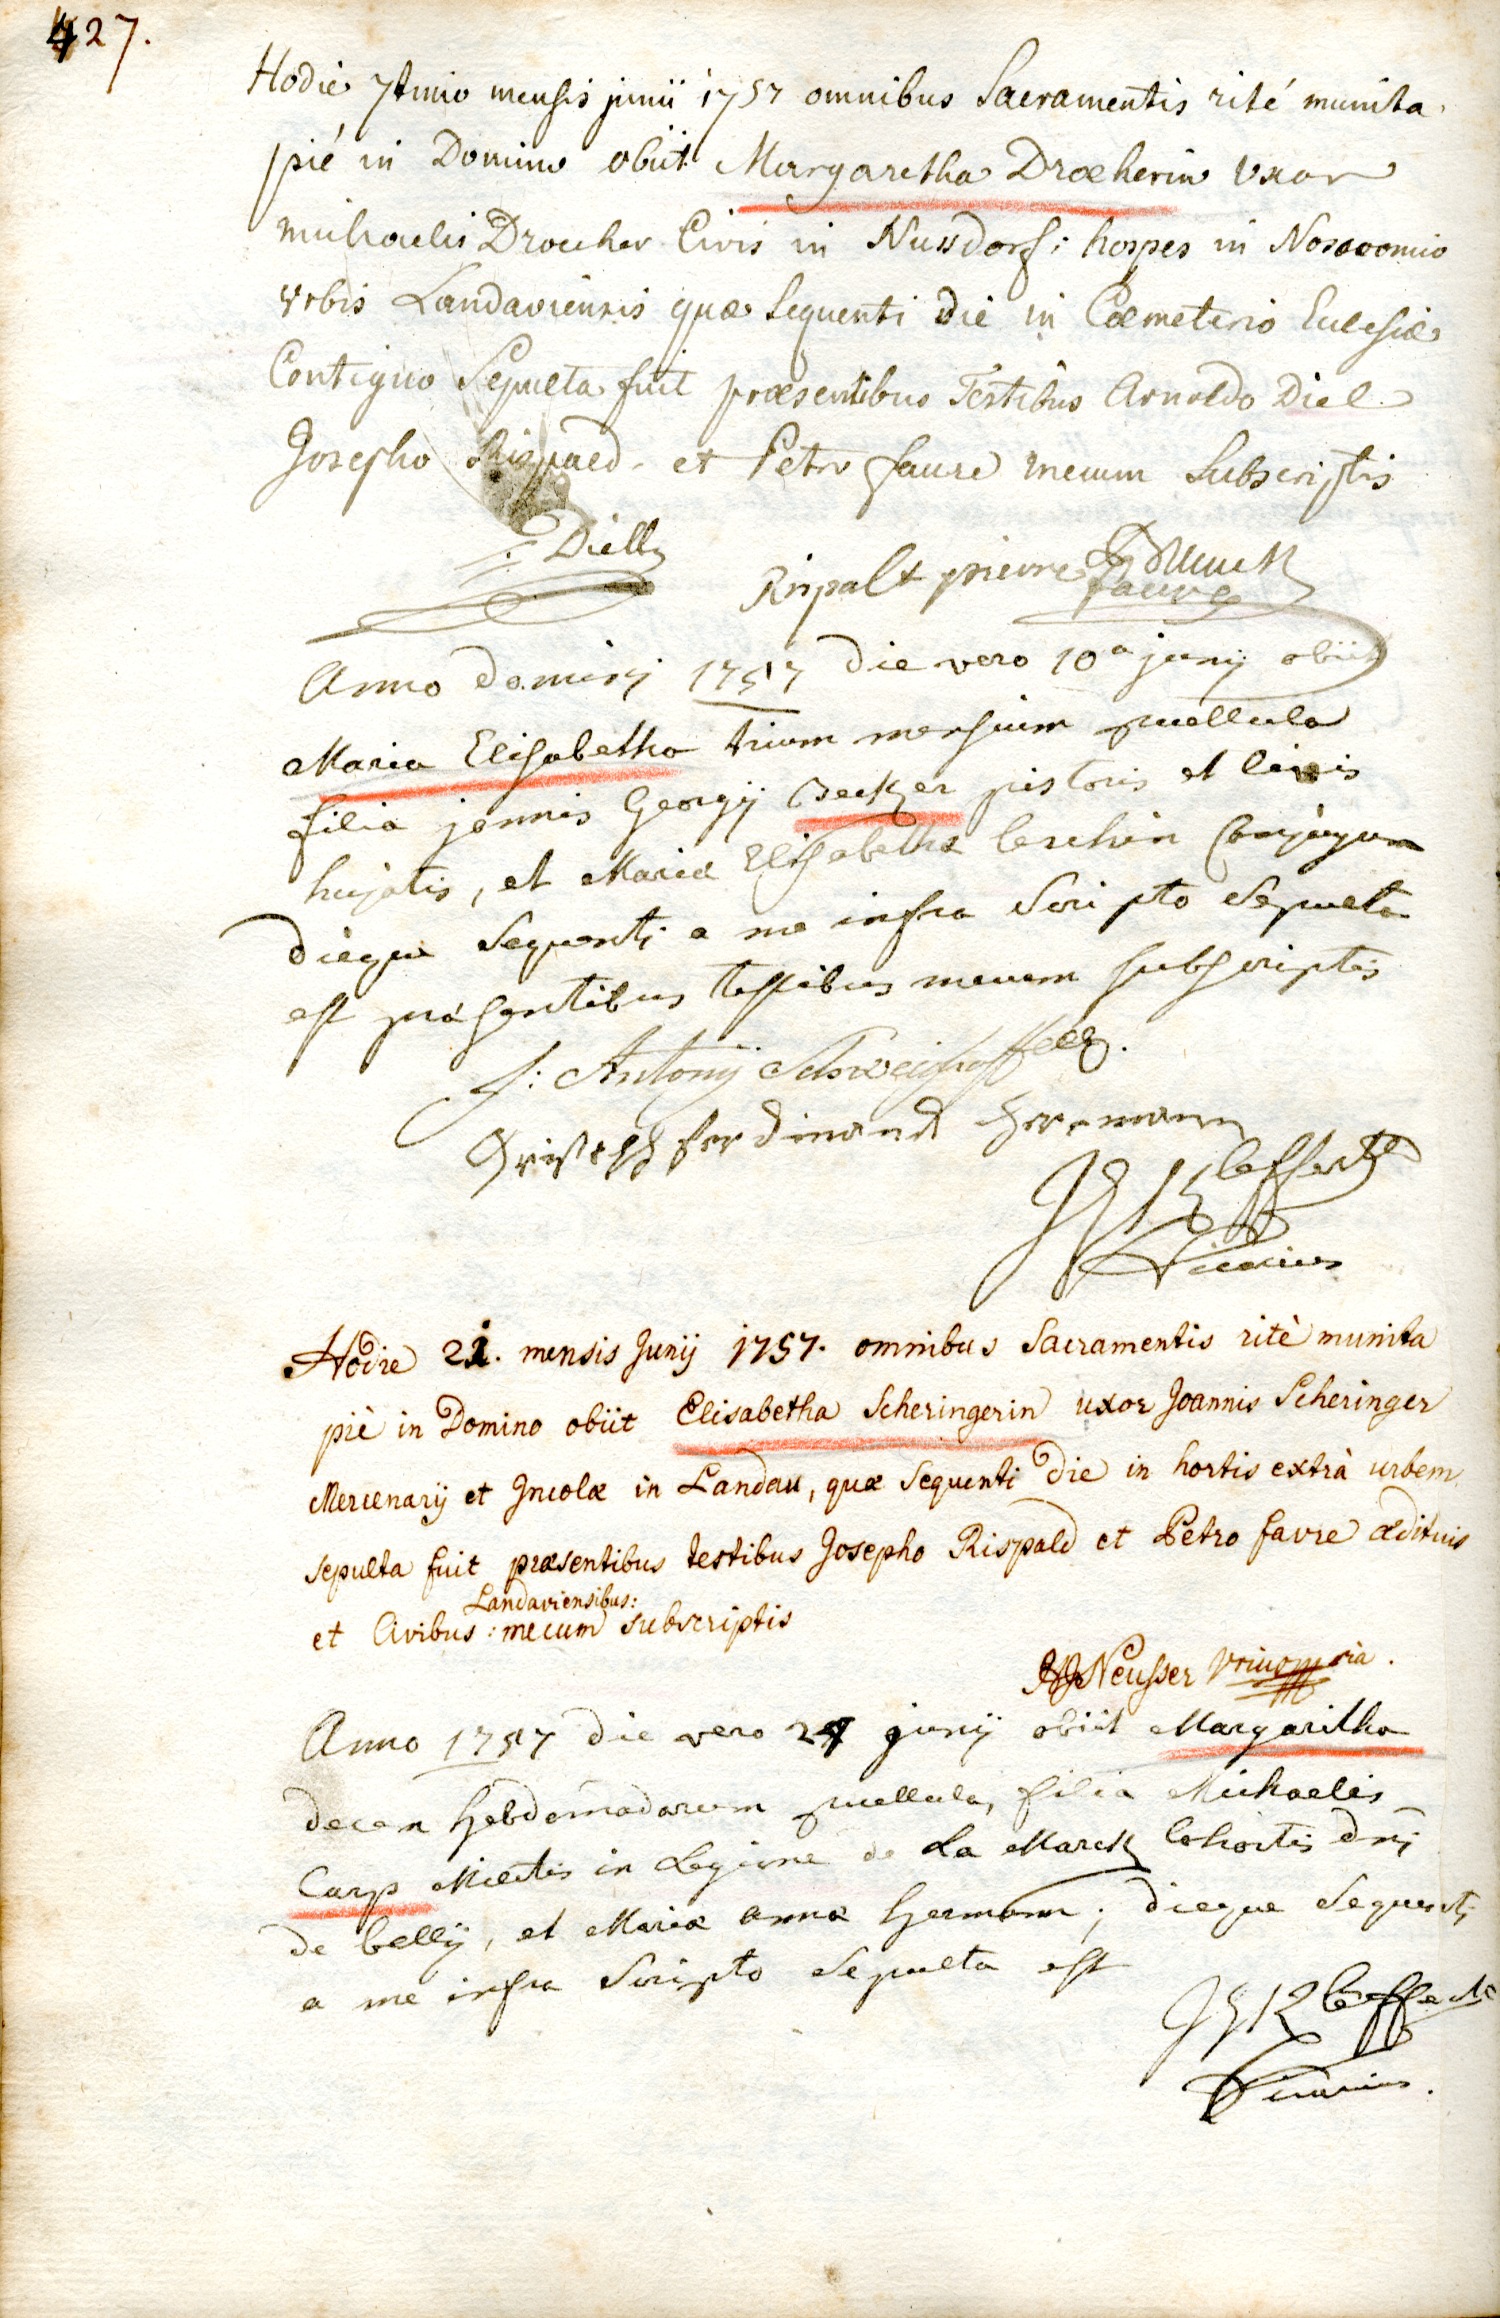 427.
Hodie 7timo mensis junii 1757 omnibus Sacramentis rité munita
pié in Domino obiit Margaretha Dræherin Uxor
michaelis Dræher Civis in Nussdorf; hospes in Nosocomio
Urbis Landaviensis quæ sequenti die in Cœmeterio Ecclesiæ
Contiguo Sepulta fuit præsentibus Testibus Arnoldo Diel
Josepho Rispald et Petro faure mecum Subscriptis
Diell
Rispalt pierre faure
Anno domini 1757 die vero 10a junij obiit
Maria Elisabetha trium mensium puellula
filia joannis Georgij Becker pistoris et civis
hujatis, et Mariæ Elisabethæ Leschin Conjugum
dieque sequenti a me infra Scripto Sepulta
est præsentibus testibus mecum subscriptis
Antonij
ferdinand Herrmann
Vicarius
Hodie 21. mensis Junij 1757. omnibus Sacramentis ritè munita
piè in Domino obiit Elisabetha Scheringerin uxor Joannis Scheringer
Mercenarij et Incolæ in Landau, quæ sequenti die in hortis extrà urbem
sepulta fuit præsentibus testibus Josepho Rispald et Petro favre ædituis
Landaviensibus:
et Civibus : mecum subscriptis
Neusser
Anno 1757 die vero 27 junij obiit Margaritha
decem hebdomadarum puellula, filia Michaelis
Carp Militis in Legione de La Marck Cohortis dnj
de belly, et Mariæ annæ Hermann; dieque sequenti
a me infra Scripto Sepulta est
Vicarius.